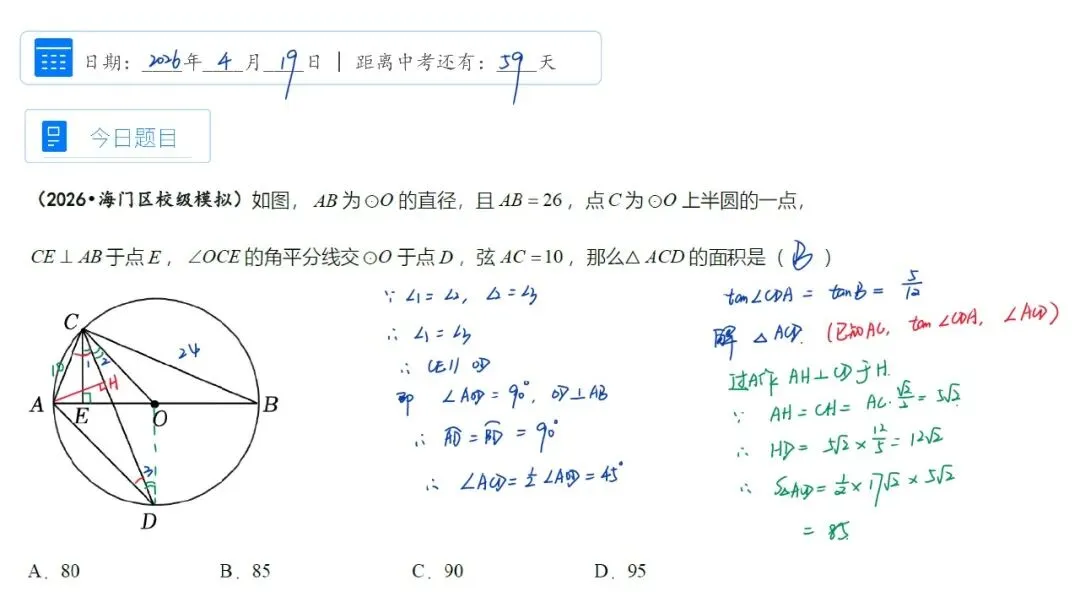 日期：2026年4月19日 | 距离中考还有：59天
今日题目
（2026•海门区校级模拟）如图，AB为⊙O的直径，且AB=26，点C为⊙O上半圆的一点，
CE⊥AB于点E，∠OCE的角平分线交⊙O于点D，弦AC=10，那么△ACD的面积是（B）
C
24
10
1
2
H
A
E
O
B
3
D
∵ ∠1=∠2，∠2=∠3
∴ ∠1=∠3
∴ CE∥OD
即 ∠AOD=90°，OD⊥AB
∴ AD=BD=90°
∴ ∠ACD=1/2∠AOD=45°
tan∠CDA=tanB=5/12
解 △ACD.（已知AC，tan∠CDA，∠ACD）
过A作AH⊥CD于H.
∵ AH=CH=AC·√2/2=5√2
∴ HD=5√2×12/5=12√2
∴ S△ACD=1/2×17√2×5√2
=85.
A．80 B．85 C．90 D．95